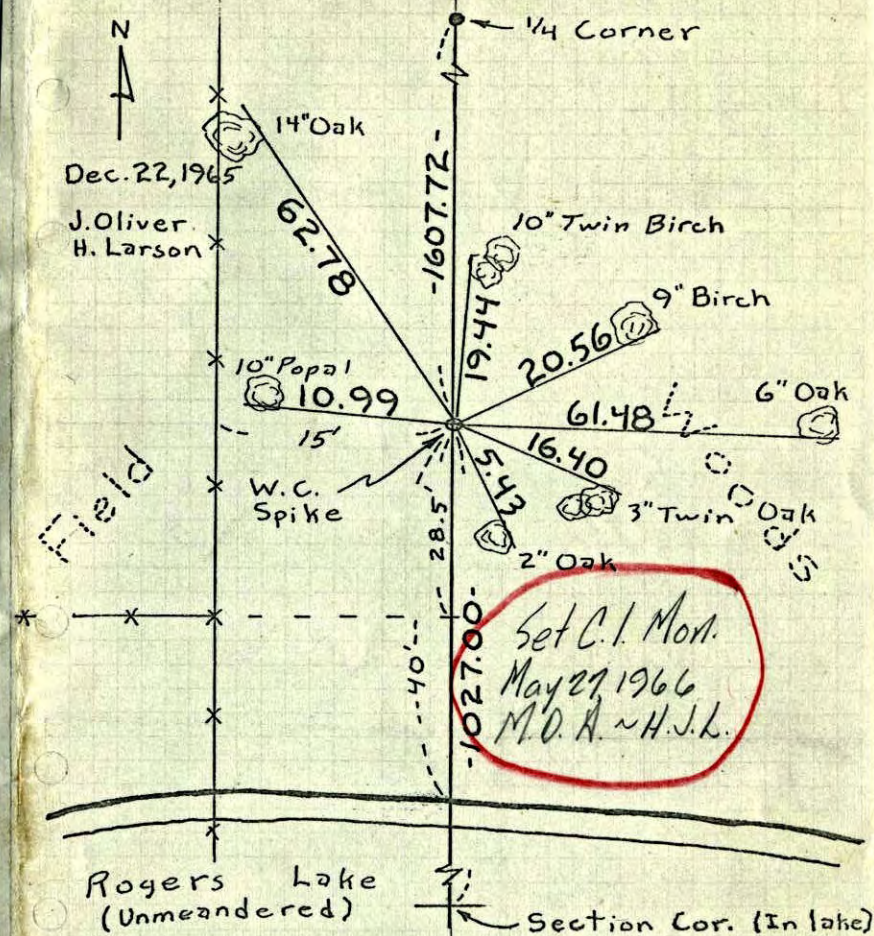 N
1/4 Corner
14" Oak
Dec. 22, 1965
J. Oliver
H. Larson
62.78
-1607.72-
10" Twin Birch
19.44
9" Birch
20.56
10" Popal
10.99
61.48
6" Oak
15'
16.40
5.43
W.C.
Spike
28.5'
3" Twin Oak
2" Oak
Field
Woods
-1027.00-
--40'--
Set C.I. Mon.
May 27, 1966
M.D.A. ~ H.J.L.
Rogers Lake
(Unmeandered)
Section Cor. (In lake)